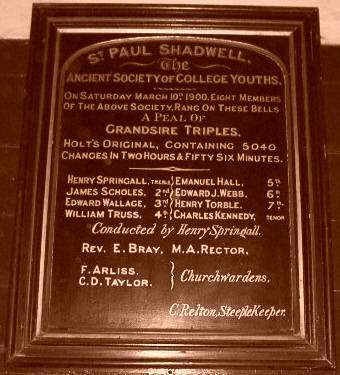 St. Paul Shadwell.
The
Ancient Society of College Youths.
On Saturday March 10th 1900, Eight Members
Of the Above Society, Rang on These Bells
A Peal of
Grandsire Triples,
Holt's Original, Containing 5040
Changes in Two Hours & Fifty Six Minutes.
Henry Springall, Treble Emanuel Hall, 5th
James Scholes, 2nd Edward J. Webb, 6th
Edward Wallage, 3rd Henry Torble, 7th
William Truss, 4th Charles Kennedy, Tenor
Conducted by Henry Springall.
Rev. E. Bray, M.A. Rector,
F. Arliss.
C.D. Taylor. } Churchwardens.
C. Relton, Steeple Keeper.